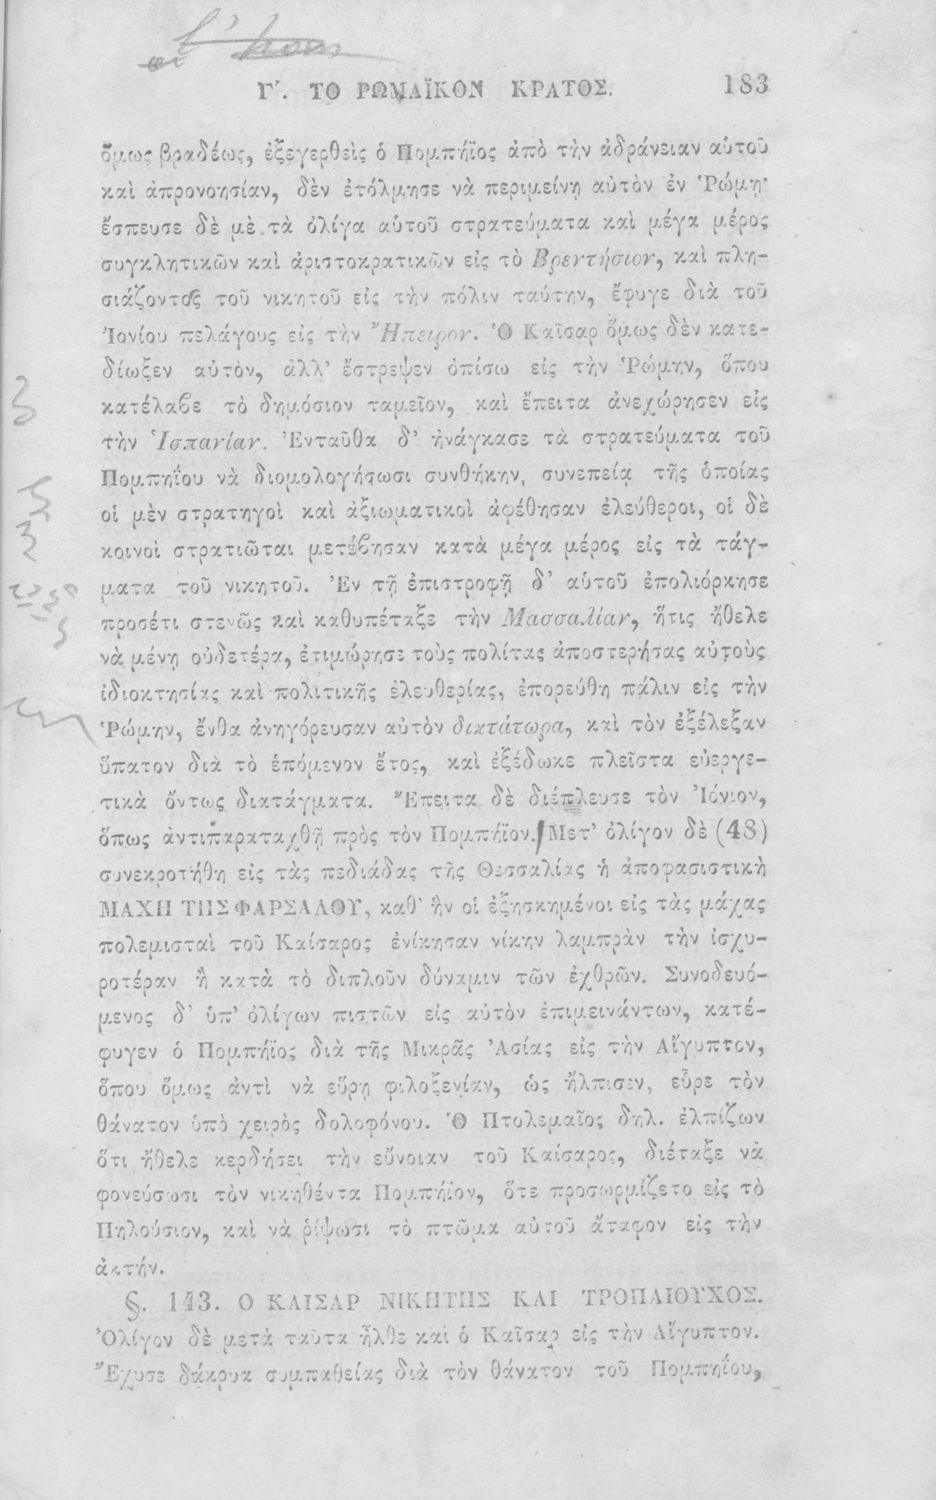 Γʹ. ΤΟ ΡΩΜΑΪΚΟΝ ΚΡΑΤΟΣ. 183
ὅμως βραδέως, ἐξεγερθεὶς ὁ Πομπήϊος ἀπὸ τὴν ἀδράνειαν αὑτοῦ
καὶ ἀπρονοησίαν, δὲν ἐτόλμησε νὰ περιμείνῃ αὐτὸν ἐν Ῥώμῃ·
ἔσπευσε δὲ μὲ τὰ ὀλίγα αὑτοῦ στρατεύματα καὶ μέγα μέρος
συγκλητικῶν καὶ ἀριστοκρατικῶν εἰς τὸ Βρεντήσιον, καὶ πλη-
σιάζοντος τοῦ νικητοῦ εἰς τὴν πόλιν ταύτην, ἔφυγε διὰ τοῦ
Ἰονίου πελάγους εἰς τὴν Ἤπειρον. Ὁ Καῖσαρ ὅμως δὲν κατε-
δίωξεν αὐτὸν, ἀλλ' ἔστρεψεν ὀπίσω εἰς τὴν Ῥώμην, ὅπου
κατέλαβε τὸ δημόσιον ταμεῖον, καὶ ἔπειτα ἀνεχώρησεν εἰς
τὴν Ἱσπανίαν. Ἐνταῦθα δ' ἠνάγκασε τὰ στρατεύματα τοῦ
Πομπηΐου νὰ διομολογήσωσι συνθήκην, συνεπείᾳ τῆς ὁποίας
οἱ μὲν στρατηγοὶ καὶ ἀξιωματικοὶ ἀφέθησαν ἐλεύθεροι, οἱ δὲ
κοινοὶ στρατιῶται μετέβησαν κατὰ μέγα μέρος εἰς τὰ τάγ-
ματα τοῦ νικητοῦ. Ἐν τῇ ἐπιστροφῇ δ' αὑτοῦ ἐπολιόρκησε
προσέτι στενῶς καὶ καθυπέταξε τὴν Μασσαλίαν, ἥτις ἤθελε
νὰ μένῃ οὐδετέρα, ἐτιμώρησε τοὺς πολίτας ἀποστερήσας αὐτοὺς
ἰδιοκτησίας καὶ πολιτικῆς ἐλευθερίας, ἐπορεύθη πάλιν εἰς τὴν
Ῥώμην, ἔνθα ἀνηγόρευσαν αὐτὸν δικτάτωρα, καὶ τὸν ἐξέλεξαν
ὕπατον διὰ τὸ ἑπόμενον ἔτος, καὶ ἐξέδωκε πλεῖστα εὐεργε-
τικὰ ὄντως διατάγματα. Ἔπειτα δὲ διέπλευσε τὸν Ἰόνιον,
ὅπως ἀντιπαραταχθῇ πρὸς τὸν Πομπήϊον. Μετ' ὀλίγον δὲ (48)
συνεκροτήθη εἰς τὰς πεδιάδας τῆς Θεσσαλίας ἡ ἀποφασιστικὴ
ΜΑΧΗ ΤΗΣ ΦΑΡΣΑΛΟΥ, καθ' ἣν οἱ ἐξησκημένοι εἰς τὰς μάχας
πολεμισταὶ τοῦ Καίσαρος ἐνίκησαν νίκην λαμπρὰν τὴν ἰσχυ-
ροτέραν ἢ κατὰ τὸ διπλοῦν δύναμιν τῶν ἐχθρῶν. Συνοδευό-
μενος δ' ὑπ' ὀλίγων πιστῶν εἰς αὐτὸν ἐπιμεινάντων, κατέ-
φυγεν ὁ Πομπήϊος διὰ τῆς Μικρᾶς Ἀσίας εἰς τὴν Αἴγυπτον,
ὅπου ὅμως ἀντὶ νὰ εὕρῃ φιλοξενίαν, ὡς ἤλπισεν, εὗρε τὸν
θάνατον ὑπὸ χειρὸς δολοφόνου. Ὁ Πτολεμαῖος δηλ. ἐλπίζων
ὅτι ἤθελε κερδήσει τὴν εὔνοιαν τοῦ Καίσαρος, διέταξε νὰ
φονεύσωσι τὸν νικηθέντα Πομπήϊον, ὅτε προσωρμίζετο εἰς τὸ
Πηλούσιον, καὶ νὰ ῥίψωσι τὸ πτῶμα αὐτοῦ ἄταφον εἰς τὴν
ἀκτήν.
§. 143. Ο ΚΑΙΣΑΡ ΝΙΚΗΤΗΣ ΚΑΙ ΤΡΟΠΑΙΟΥΧΟΣ.
Ὀλίγον δὲ μετὰ ταῦτα ἦλθε καὶ ὁ Καῖσαρ εἰς τὴν Αἴγυπτον.
Ἔχυσε δάκρυα συμπαθείας διὰ τὸν θάνατον τοῦ Πομπηΐου,